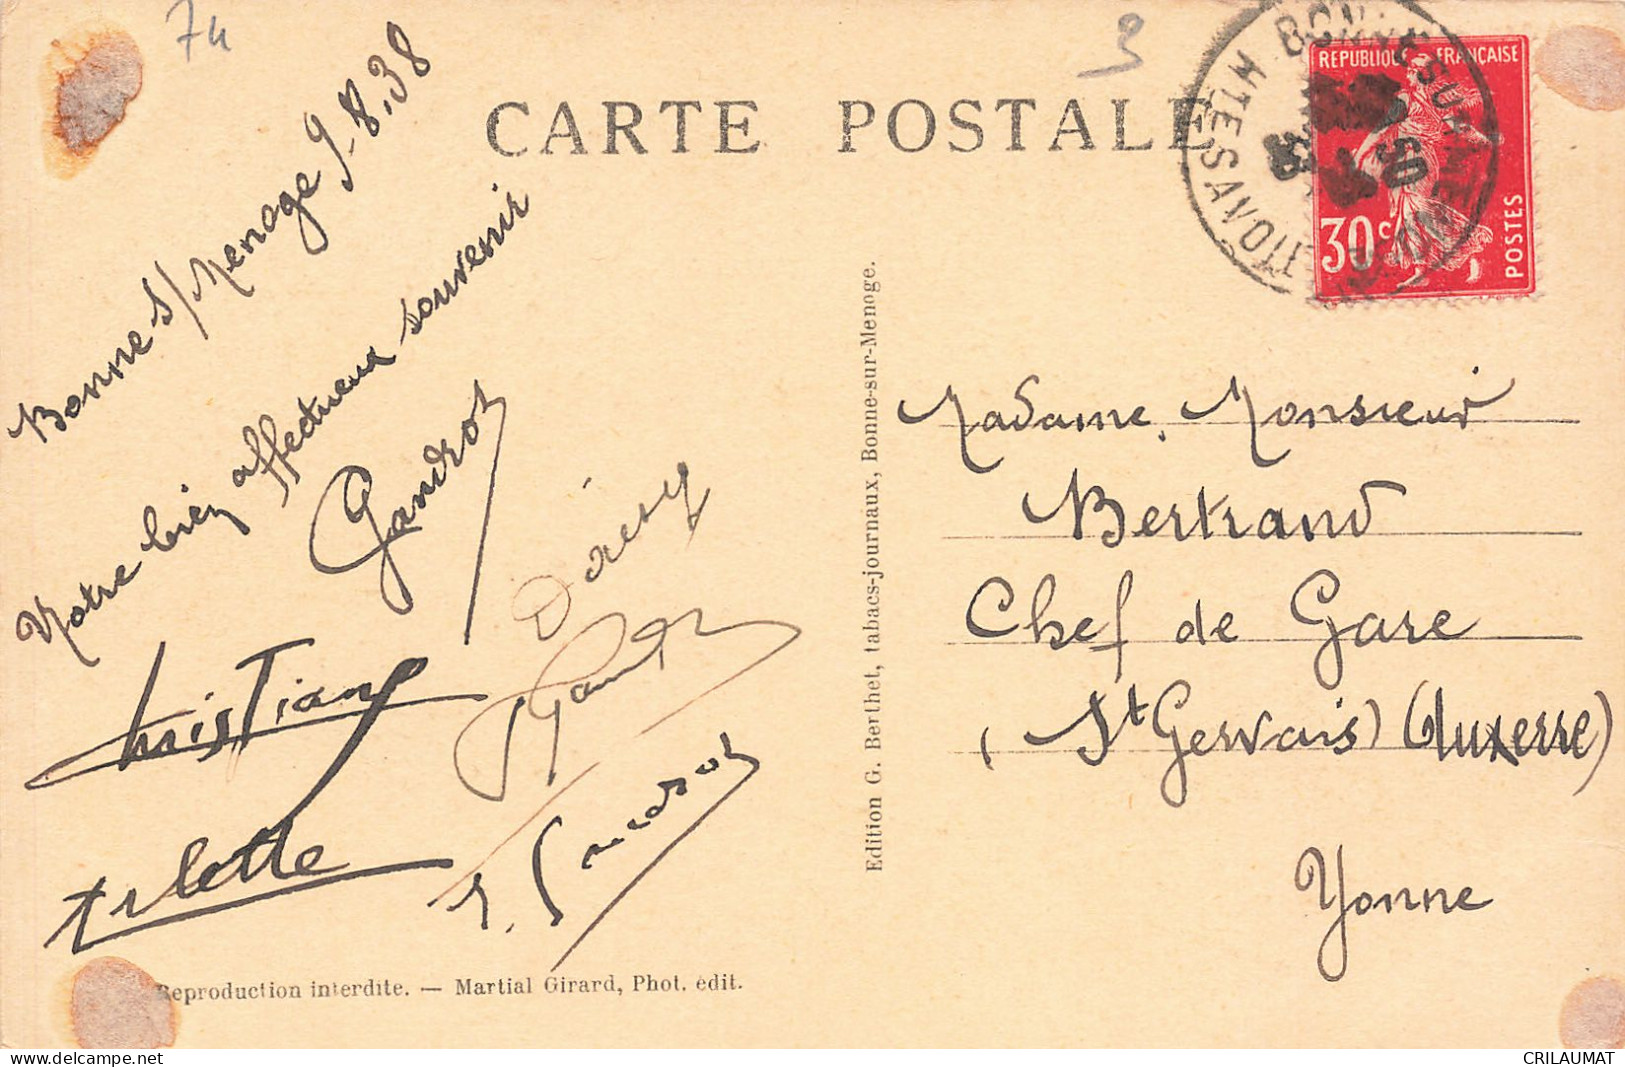 74
3
CARTE POSTALE
BONNE SUR MENOGE
HTE SAVOIE
REPUBLIQUE FRANÇAISE
30c
POSTES
Bonne s/Menoge 9-8.38
Notre bien affectueux souvenir
Gandrot
Christiane
Arlette
Edition G. Berthet, tabacs-journaux, Bonne-sur-Menoge.
Madame, Monsieur
Bertrand
Chef de Gare
(St Gervais) (Auxerre)
Yonne
Reproduction interdite. — Martial Girard, Phot. édit.
www.delcampe.net
CRILAUMAT